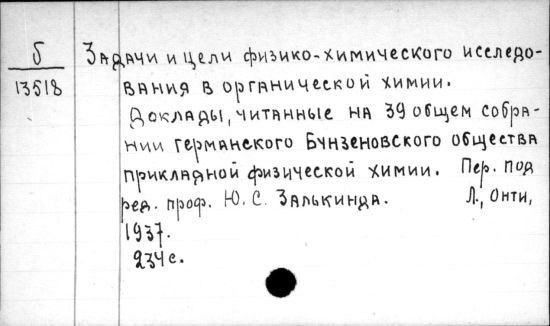 Б
13518
Задачи и цели физико-химического исследо-
вания в органической химии.
Доклады, читанные на 39 общем собра-
нии германского Бунзеновского общества
прикладной физической химии. Пер. под
ред. проф. Ю. С. Залькинда. Л., Онти,
1937.
234 с.